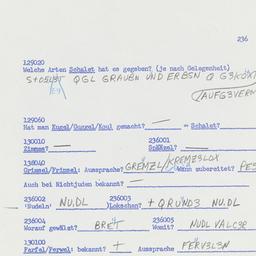 236
129020
Welche Arten Schalet hat es gegeben? (je nach Gelegenheit)
QGL GRAUBN UND ERBSN
129060
Hat man Kugel/Guggel/Koul gemacht? — = Schalet?
130010 236001
Zimmes? —
138040
Grimsel/Frimsel: Aussprache? GREMZL/KREMZSLQX Wann zubereitet?
Auch bei Nichtjuden bekannt? —
236002 236003
'Nudeln' NU.DL Lokschen? + QRUND3 NU.DL
236004 236005
Worauf gewälzt? BRET Womit? NUDLVALC3R
130100
Farfal/Ferwel: bekannt? + Aussprache FERV3L3N